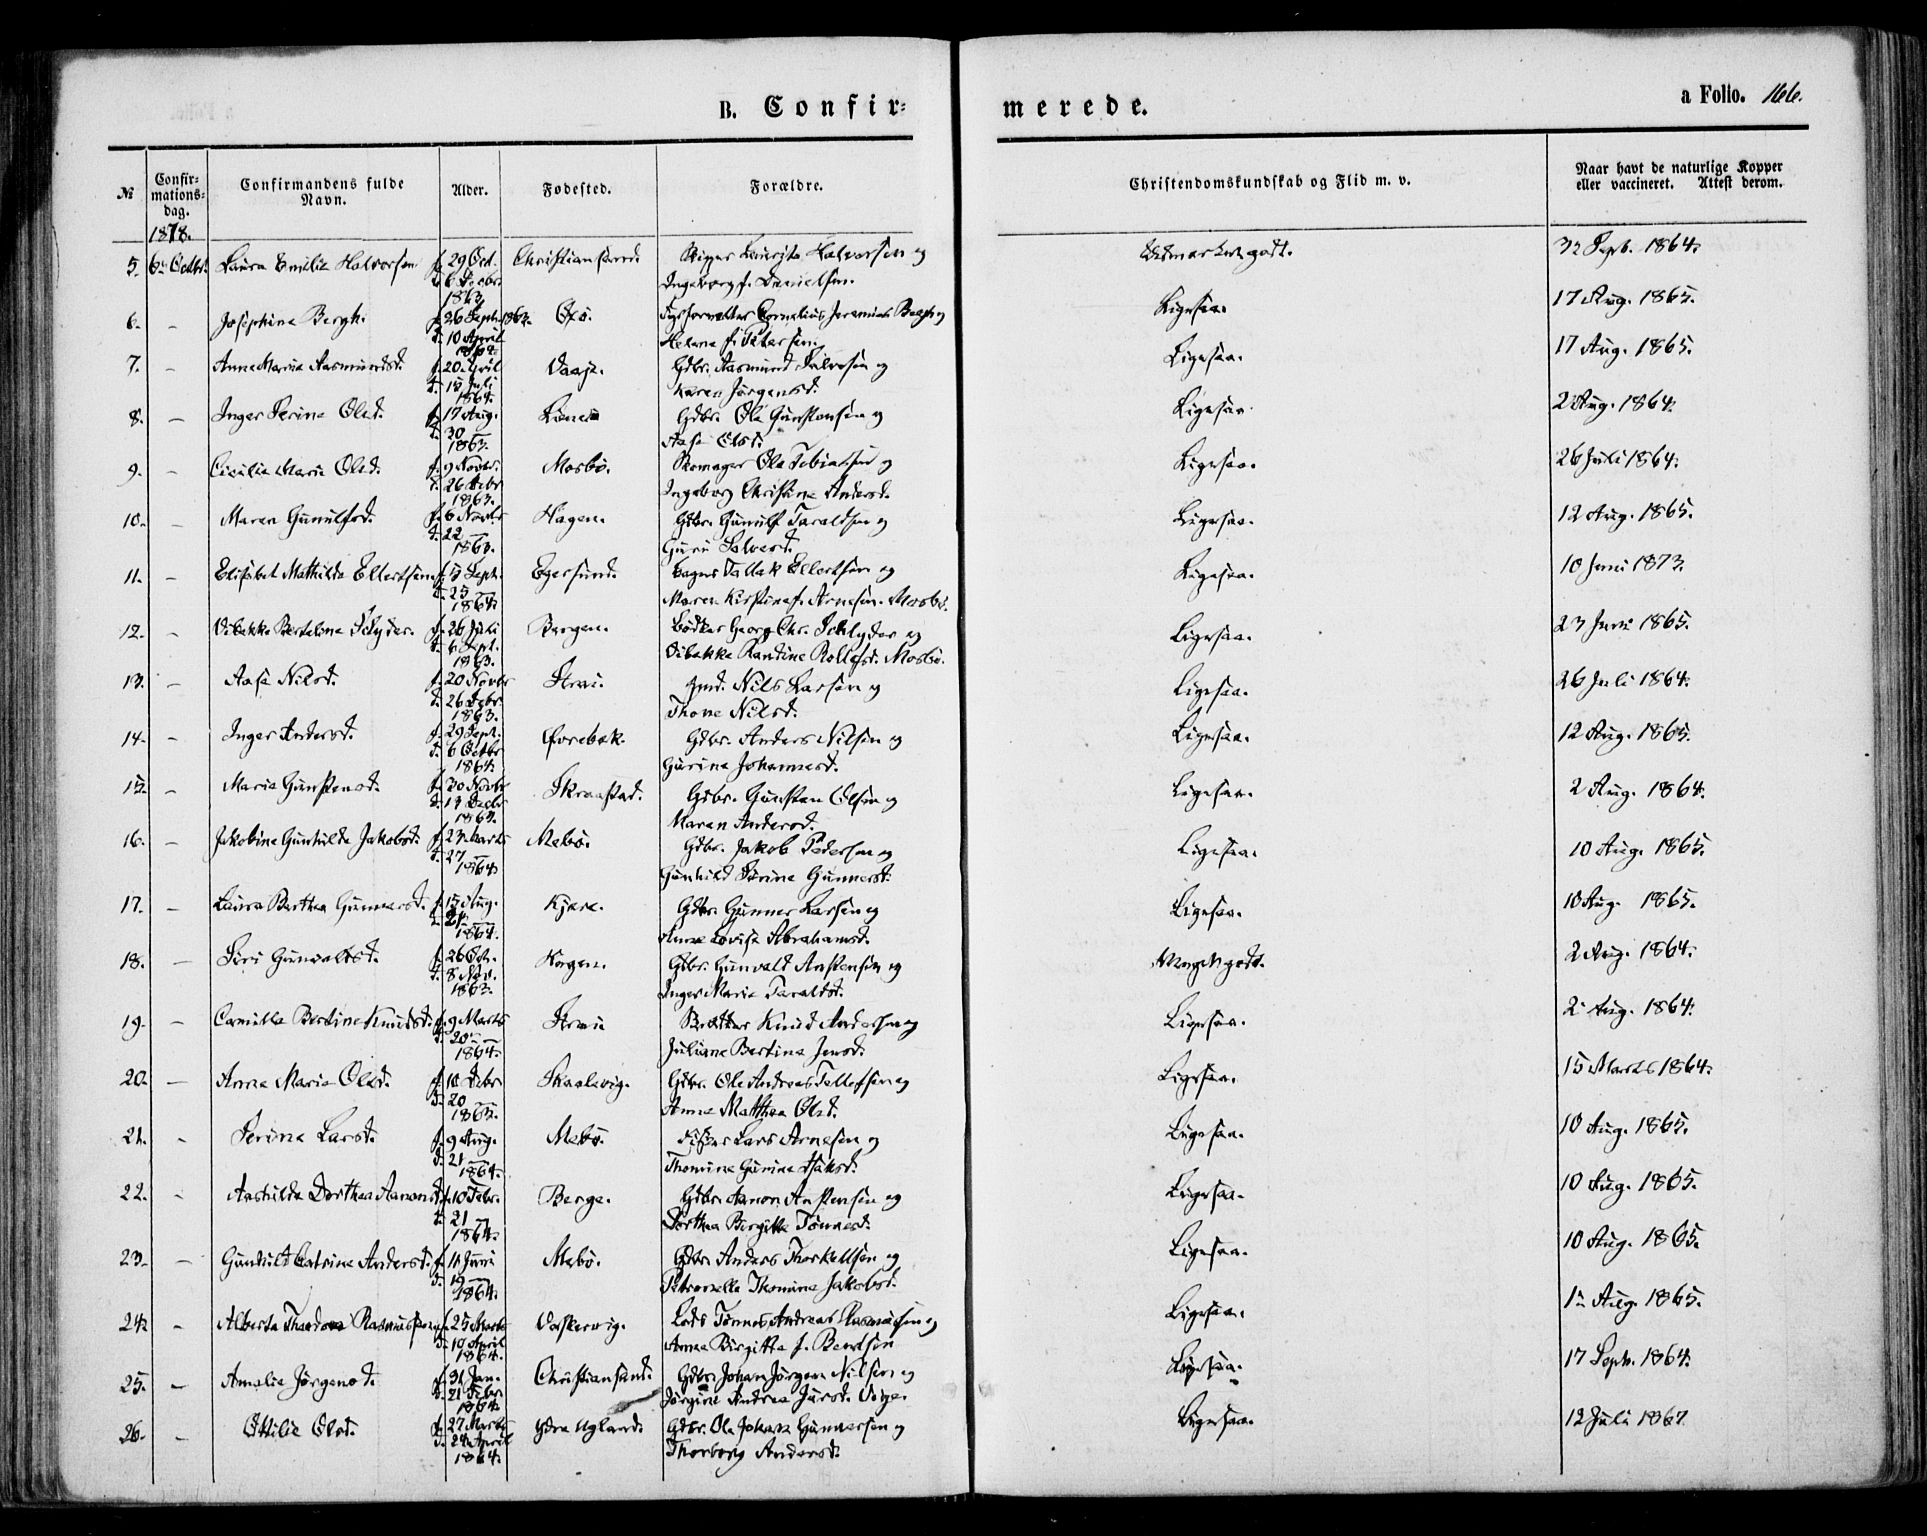 B. Confir-
merede.
a Folio. 166.
№
Confir-
mations-
dag.
Confirmandens fulde
Navn.
Alder.
Fødested.
Forældre.
Christendomskundskab og Flid m. v.
Naar havt de naturlige Kopper
eller vaccineret. Attest derom.
1878.
5. 6 Octbr. Laura Emilie Halvorsen f. 29 Oct. Christianssand. Halvorsen og Sept. 1864.
Ingeborg f. Danielsen.
1863
6. — Josephine Bergh. f. 26 Septr. 1863. Cornelius Jeremias Bergh og Ligesaa. 17 Aug. 1865.
d. 10 April Helene f. Petersen.
1864.
7. — Anne Marie Aasmundsd. f. 20 April Vaaje. Gdbr. Aasmund Salvesen og Ligesaa. 17 Aug. 1865.
d. 15 Juli Karen Jørgensd.
1864.
8. — Inger Serine Olsd. f. 17 Aug. Gdbr. Ole Gunstensen og Ligesaa 2 Aug. 1864.
d. 30 — Aase Olsd.
1863.
9. — Cecilie Marie Olsd. f. 9 Novbr. Mosbø. Skomager Ole Tobiassen og Ligesaa. 26 Juli 1864.
d. 26 Decbr Ingeborg Christine Andersd.
1863.
10. — Maren Gunulfsd. f. 6 Novbr Hagen. Gdbr. Gunulf Taraldsen og Ligesaa. 12 Aug. 1865.
d. 22 — Guru Salvesd.
1863.
11. — Elisabet Mathilde Ellertsen f. 13 Septr. Egersund. Tallak Ellertsen og Ligesaa. 10 Juni 1873.
d. 25 — Maren Kirstine f. Arnesen. Mosbø.
1864.
12. — Vibekke Schlyder. f. 26 Juli Bergen. Bødker Georg Chr. Schlyder og Ligesaa. 23 Juni 1865.
d. 6 Sept. Vibekke Randine Rolfsd. Mosbø.
1863.
13. — Aase Nilsd. f. 20 Novbr Strai. Nils Larsen og Ligesaa. 26 Juli 1864.
d. 26 Decbr. Thone Nilsd.
1863.
14. — Inger Andersd. f. 29 Sept. Øvrebøk. Gdbr. Anders Nilsen og Ligesaa. 12 Aug. 1865.
d. 6 Octbr Gurine Johannesd.
1864.
15. — Marie Gunstensd. f. 30 Novbr Skraastad. Gdbr. Gunsten Olsen og Ligesaa. 2 Aug. 1864.
d. 13 Decbr Maren Andersd.
1863.
16. — Jakobine Gunhilde Jakobsd. f. 2 Marts Mebø. Gdbr. Jakob Pedersen og Ligesaa. 10 Aug. 1865.
d. 27 — Gunhild Serine Gunnersd.
1864.
17. — Laura Berthea Gunnersd. f. 15 Aug. Kjære. Gdbr. Gunner Larsen og Ligesaa. 10 Aug. 1865.
Anne Lovise Abrahamsd.
1864.
18. — Siri Gunvaldsd. f. 26 Oct. Hagen. Gdbr. Gunvald Anstensen og Meget godt. 2 Aug. 1864.
d. 8 Nov. Inger Marie Taraldsd.
1863.
19. — Camilla Bertine Knudsd. f. 9 Marts Strai Knud Andersen og Ligesaa. 2 Aug. 1864.
d. 20 — Juliane Bertine Jensd.
1864.
20. — Anne Marie Olsd. f. 10 Decbr Skaalevig. Gdbr. Ole Andreas Tellefsen og Ligesaa. 15 Marts 1864.
d. 20 — Anne Matthea Olsd.
1863.
21. — Serine Larsd. f. 9 Aug. Mebø. Fisker Lars Arnesen og Ligesaa. 10 Aug. 1865.
d. 21 — Thomine Gurine Isaksd.
1864.
22. — Aashilde Dorthea Aanonsd. f. 10 Febr. Berge. Gdbr. Aanon Anstensen og Ligesaa. 10 Aug. 1865.
d. 21 — Dorthea Birgitte Tønnesd.
1864.
23. — Gunhild Catrine Andersd. f. 11 Juni Mebø. Gdbr. Anders Thorkellsen og Ligesaa. 10 Aug. 1865.
d. 19 — Petronelle Thomine Jakobsd.
1864.
24. — Alberta Theodora Rasmussen f. 25 Marts Vaskervig. Lods Tønnes Andreas Rasmussen og Ligesaa. 1 Aug. 1865.
d. 19 April Anna Birgitte f. Bentsen
1864.
25. — Amalie Jørgensd. f. 31 Jan. Christiansand. Gdbr. Johan Jørgen Nilsen og Ligesaa. 17 Septr. 1864.
d. 21 Febr. Jørgine Andrea
1864.
26. — Ottilie Olsd. f. 27 Marts Ydre Ugland. Gdbr. Ole Johan Gunnersen og Ligesaa. 12 Juli 1867
d. 24 April Thorborg Andersd.
1864.